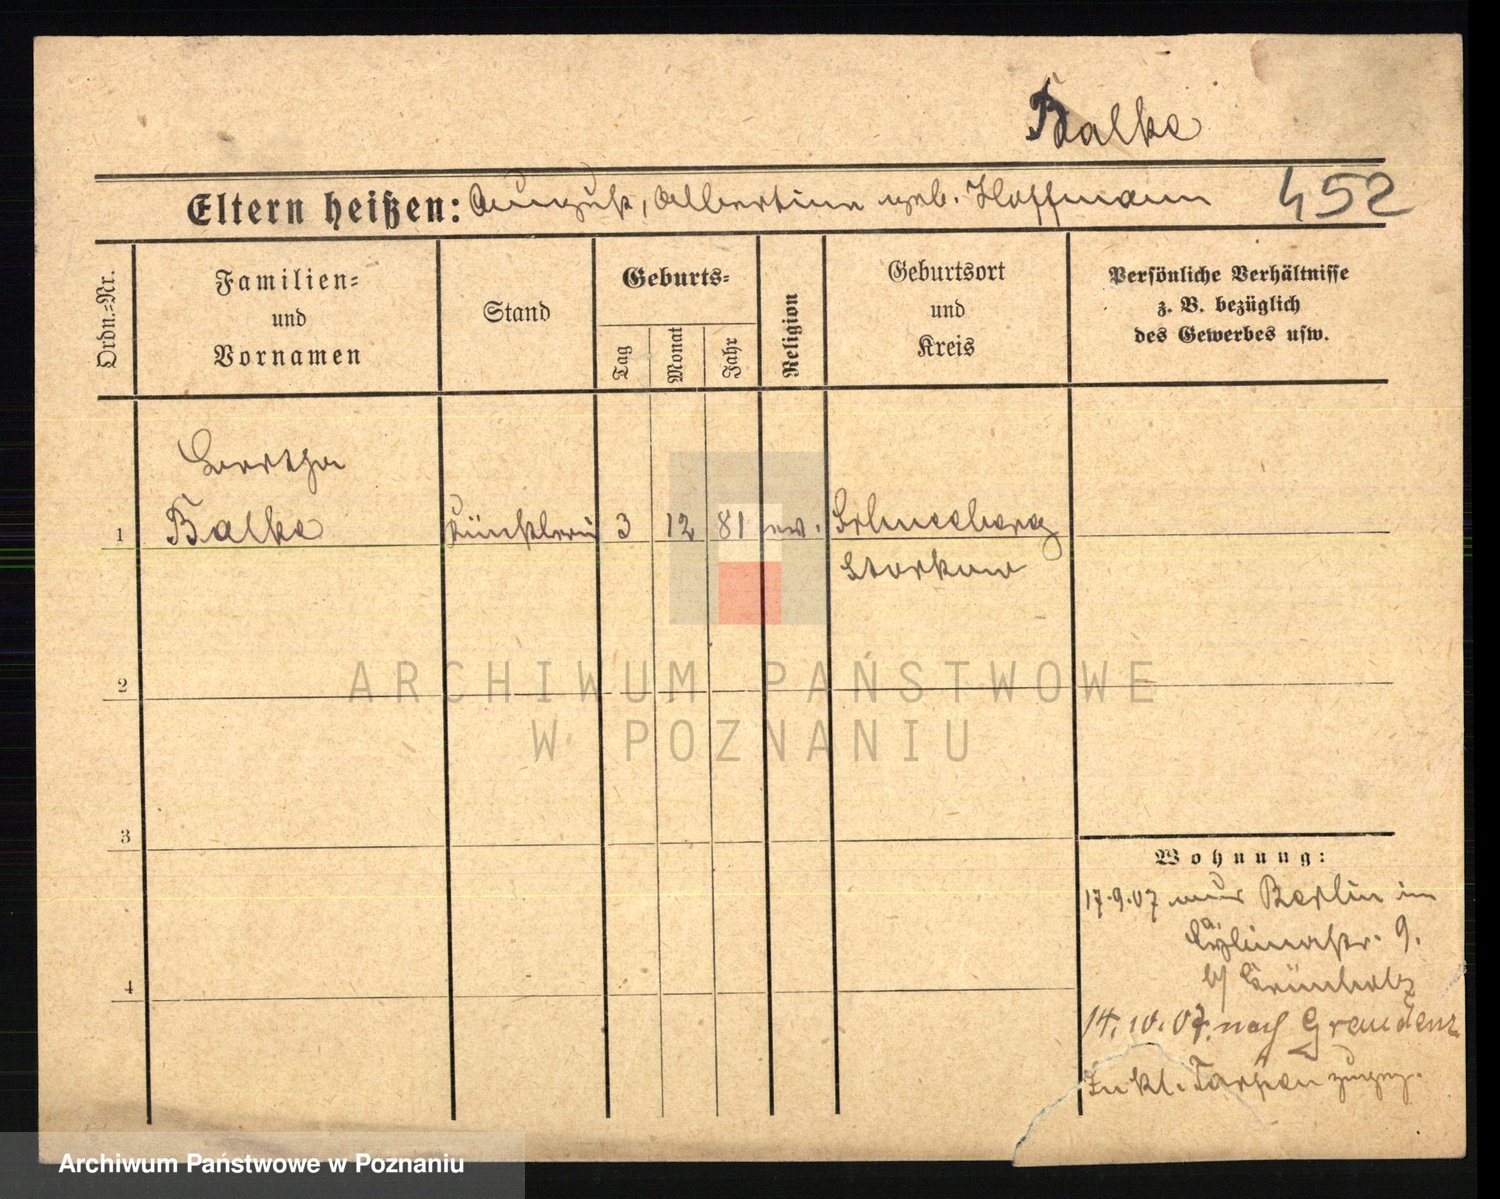 Balke
Eltern heißen: August, Albertine geb. Hoffmann 452
Ordn.=Nr.
Familien=
und
Vornamen
Stand
Geburts=
Tag
Monat
Jahr
Religion
Geburtsort
und
Kreis
Persönliche Verhältnisse
z. B. bezüglich
des Gewerbes usw.
Bertha
1 Balke Künstlerin 3 12 81 ev. Schneeberg
Storkow
2
3
4
Wohnung:
17.9.07 aus Berlin im
9.
b/ Grünholz
14.10.07. nach Graudenz
Kl. Tarpen
ARCHIWUM PAŃSTWOWE
W POZNANIU
Archiwum Państwowe w Poznaniu